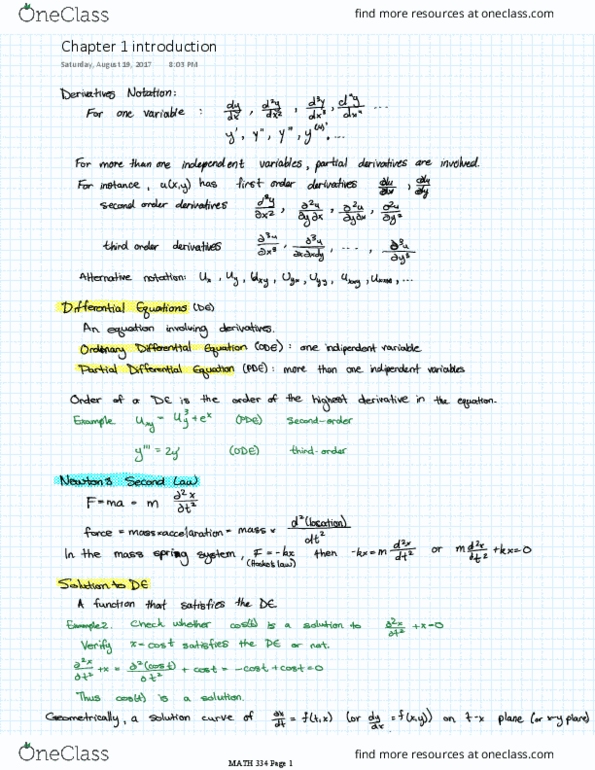 OneClass
find more resources at oneclass.com
Chapter 1 introduction
Saturday, August 19, 2017 8:03 PM
Derivatives Notation:
For one variable : dy/dx , d²y/dx² , d³y/dx³ , d⁴y/dx⁴ ...
y', y'', y''', y⁽⁴⁾, ...
For more than one independent variables, partial derivatives are involved.
For instance, u(x,y) has first order derivatives ∂u/∂x , ∂u/∂y
second order derivatives ∂²u/∂x² , ∂²u/∂y∂x , ∂²u/∂y∂x , ∂²u/∂y²
third order derivatives ∂³u/∂x³ , ∂³u/∂x∂x∂y , ... , ∂³u/∂y³
Alternative notation: Ux , Uy , Uxy , Uyx , Uyy , Uxxy , Uxxx , ...
Differential Equations (DE)
An equation involving derivatives.
Ordinary Differential Equation (ODE) : one indipendent variable
Partial Differential Equation (PDE) : more than one indipendent variables
Order of a DE is the order of the highest derivative in the equation.
Example Uxy = Uy³ + eˣ (PDE) second-order
y''' = 2y' (ODE) third-order
Newton's Second Law
F = ma = m ∂²x/∂t²
force = mass × accelaration = mass × d²(location)/dt²
In the mass spring system, F = -kx then -kx = m d²x/dt² or m d²x/dt² + kx = 0
(Hooke's law)
Solution to DE
A function that satisfies the DE.
Example 2. Check whether cos(t) is a solution to ∂²x/∂t² + x = 0
Verify x = cos t satisfies the DE or not.
∂²x/∂t² + x = ∂²(cos t)/∂t² + cos t = -cos t + cos t = 0
Thus cos(t) is a solution.
Geometrically, a solution curve of dx/dt = f(t,x) (or dy/dx = f(x,y)) on t-x plane (or x-y plane)
OneClass
find more resources at oneclass.com
MATH 334 Page 1